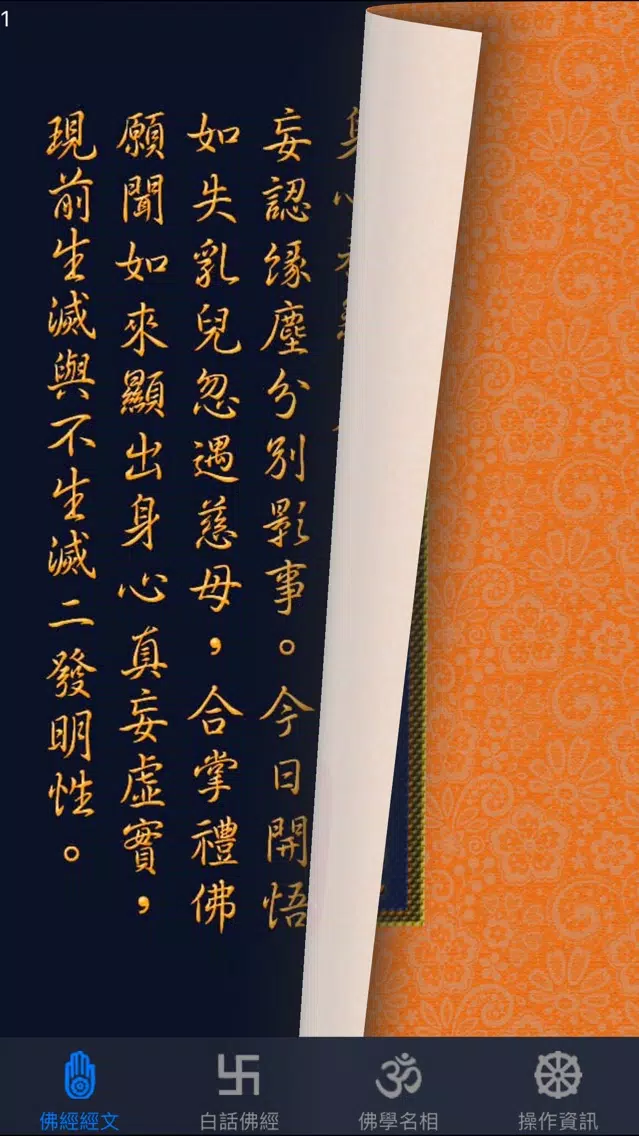 1
妄認緣塵分別影事。今日開悟
如失乳兒忽遇慈母，合掌禮佛
願聞如來顯出身心真妄虛實，
現前生滅與不生滅二發明性。
佛經經文
白話佛經
佛學名相
操作資訊